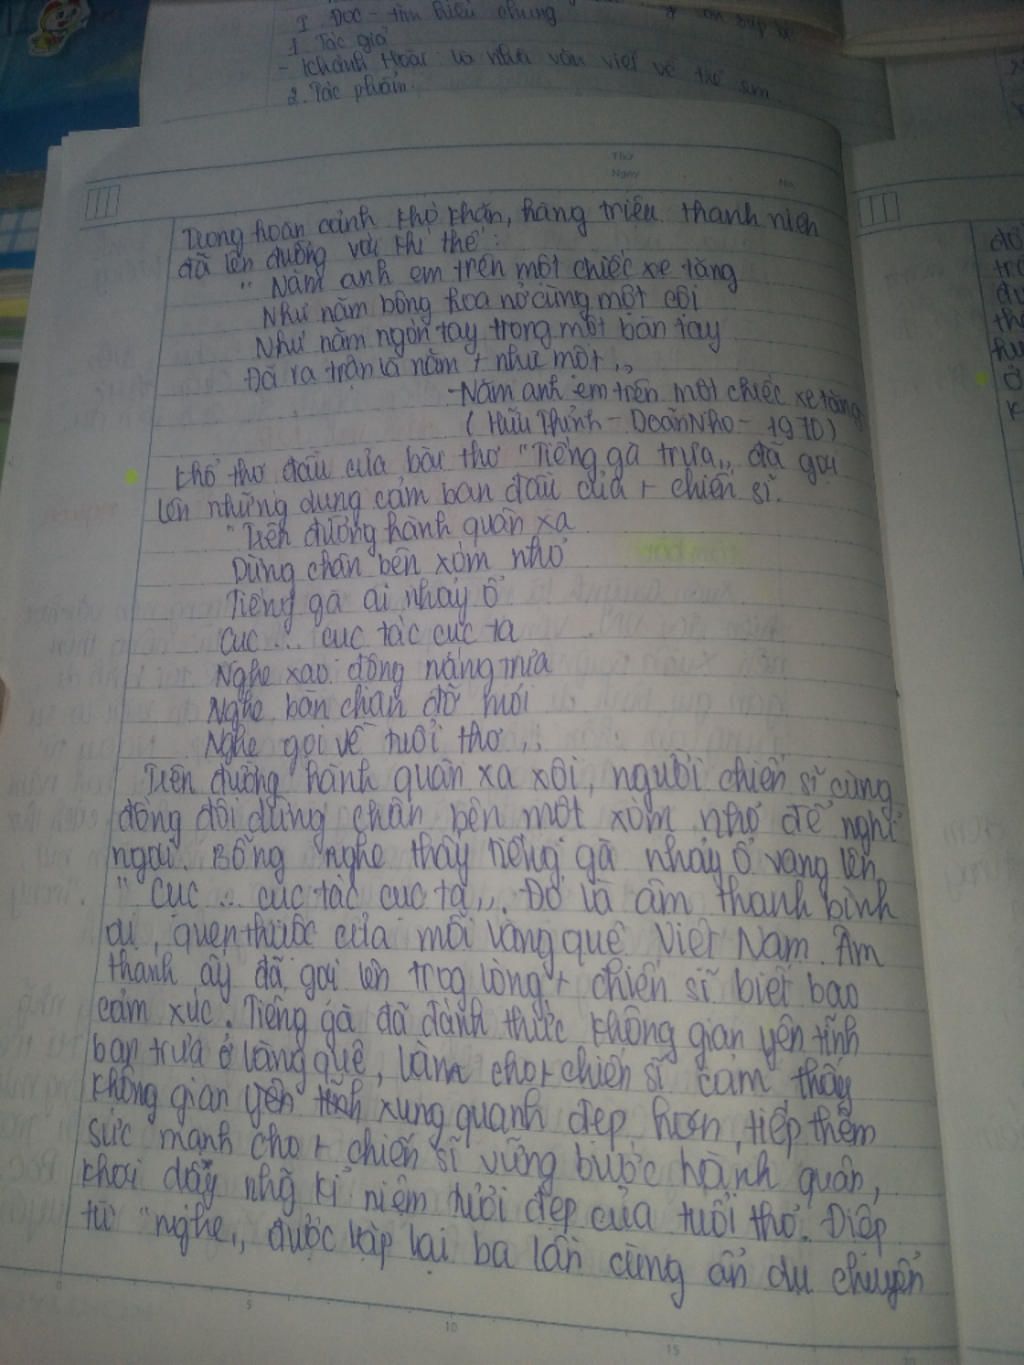 I. Đọc - tìm hiểu chung
1. Tác giả
- Khánh Hoài là nhà văn viết về trẻ em
2. Tác phẩm.
Thứ
Ngày
No.
Trong hoàn cảnh khó khăn, hàng triệu thanh niên
đã lên đường với khí thế :
" Năm anh em trên một chiếc xe tăng
Như năm bông hoa nở cùng một cội
Như năm ngón tay trong một bàn tay
Đã ra trận là năm + như một ,,
- Năm anh em trên một chiếc xe tăng
( Hữu Thỉnh - Doãn Nho - 1970)
Khổ thơ đầu của bài thơ "Tiếng gà trưa,, đã gợi
lên những dung cảm ban đầu của + chiến sĩ.
" Trên đường hành quân xa
Dừng chân bên xóm nhỏ
Tiếng gà ai nhảy ổ
Cục ... cục tác cục ta
Nghe xao động nắng trưa
Nghe bàn chân đỡ mỏi
Nghe gọi về tuổi thơ ,,
Trên đường hành quân xa xôi, người chiến sĩ cùng
đồng đội dừng chân bên một xóm nhỏ để nghỉ
ngơi. Bỗng nghe thấy tiếng gà nhảy ổ vang lên
" Cục ... cục tác cục ta ,,. Đó là âm thanh bình
dị, quen thuộc của mỗi làng quê Việt Nam. Âm
thanh ấy đã gợi lên trog lòng + chiến sĩ biết bao
cảm xúc. Tiếng gà đã đánh thức không gian yên tĩnh
ban trưa ở làng quê, làm cho + chiến sĩ cảm thấy
không gian yên tĩnh xung quanh đẹp hơn, tiếp thêm
sức mạnh cho + chiến sĩ vững bước hành quân,
khơi dậy nhữg kỉ niệm tươi đẹp của tuổi thơ. Điệp
từ "nghe,, được lặp lại ba lần cùng ẩn dụ chuyển
0
5
10
15